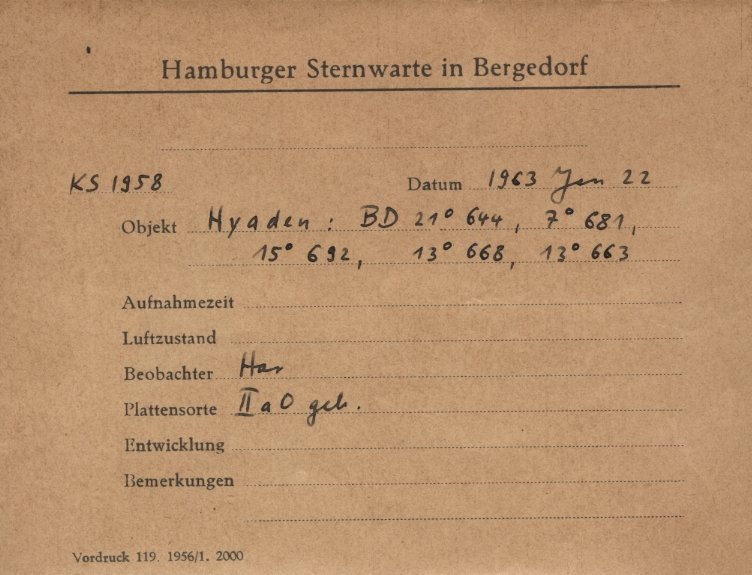 Hamburger Sternwarte in Bergedorf
KS 1958 Datum 1963 Jan 22
Objekt Hyaden: BD 21° 644, 7° 681,
15° 692, 13° 668, 13° 663
Aufnahmezeit
Luftzustand
Beobachter Har
Plattensorte II a O geb.
Entwicklung
Bemerkungen
Vordruck 119. 1956/1. 2000